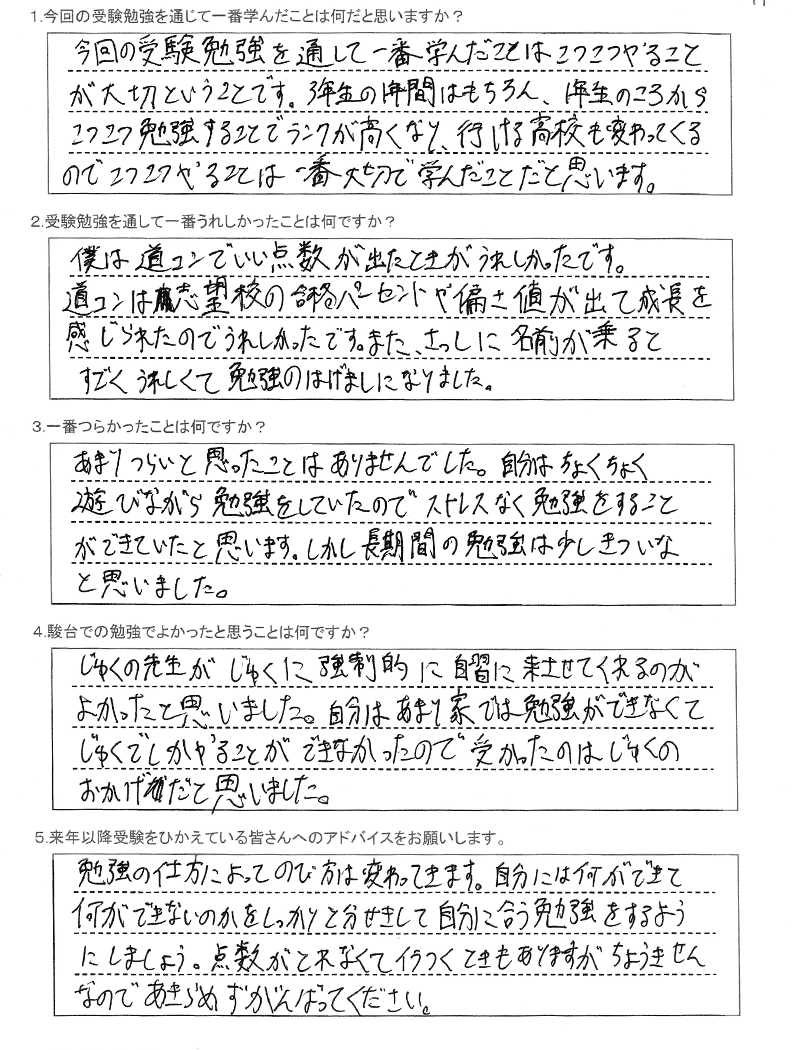 1.今回の受験勉強を通じて一番学んだことは何だと思いますか？
今回の受験勉強を通して一番学んだことはコツコツやること
が大切ということです。3年生の1年間はもちろん、1年生のころから
コツコツ勉強することでランクが高くなり、行ける高校も変わってくる
のでコツコツやることは一番大切で学んだことだと思います。
2.受験勉強を通して一番うれしかったことは何ですか？
僕は道コンでいい点数が出たときがうれしかったです。
道コンは志望校の合格パーセントや偏さ値が出て成長を
感じられたのでうれしかったです。また、さっしに名前が乗ると
すごくうれしくて勉強のはげましになりました。
3.一番つらかったことは何ですか？
あまりつらいと思ったことはありませんでした。自分はちょくちょく
遊びながら勉強をしていたのでストレスなく勉強をすること
ができていたと思います。しかし長期間の勉強は少しきついな
と思いました。
4.駿台での勉強でよかったと思うことは何ですか？
じゅくの先生がじゅくに強制的に自習に来させてくれるのが
よかったと思いました。自分はあまり家では勉強ができなくて
じゅくでしかやることができなかったので受かったのはじゅくの
おかげだと思いました。
5.来年以降受験をひかえている皆さんへのアドバイスをお願いします。
勉強の仕方によってのび方は変わってきます。自分には何ができて
何ができないのかをしっかりと分せきして自分に合う勉強をするよう
にしましょう。点数がとれなくてイラつくときもありますがちょうきせん
なのであきらめずがんばってください。